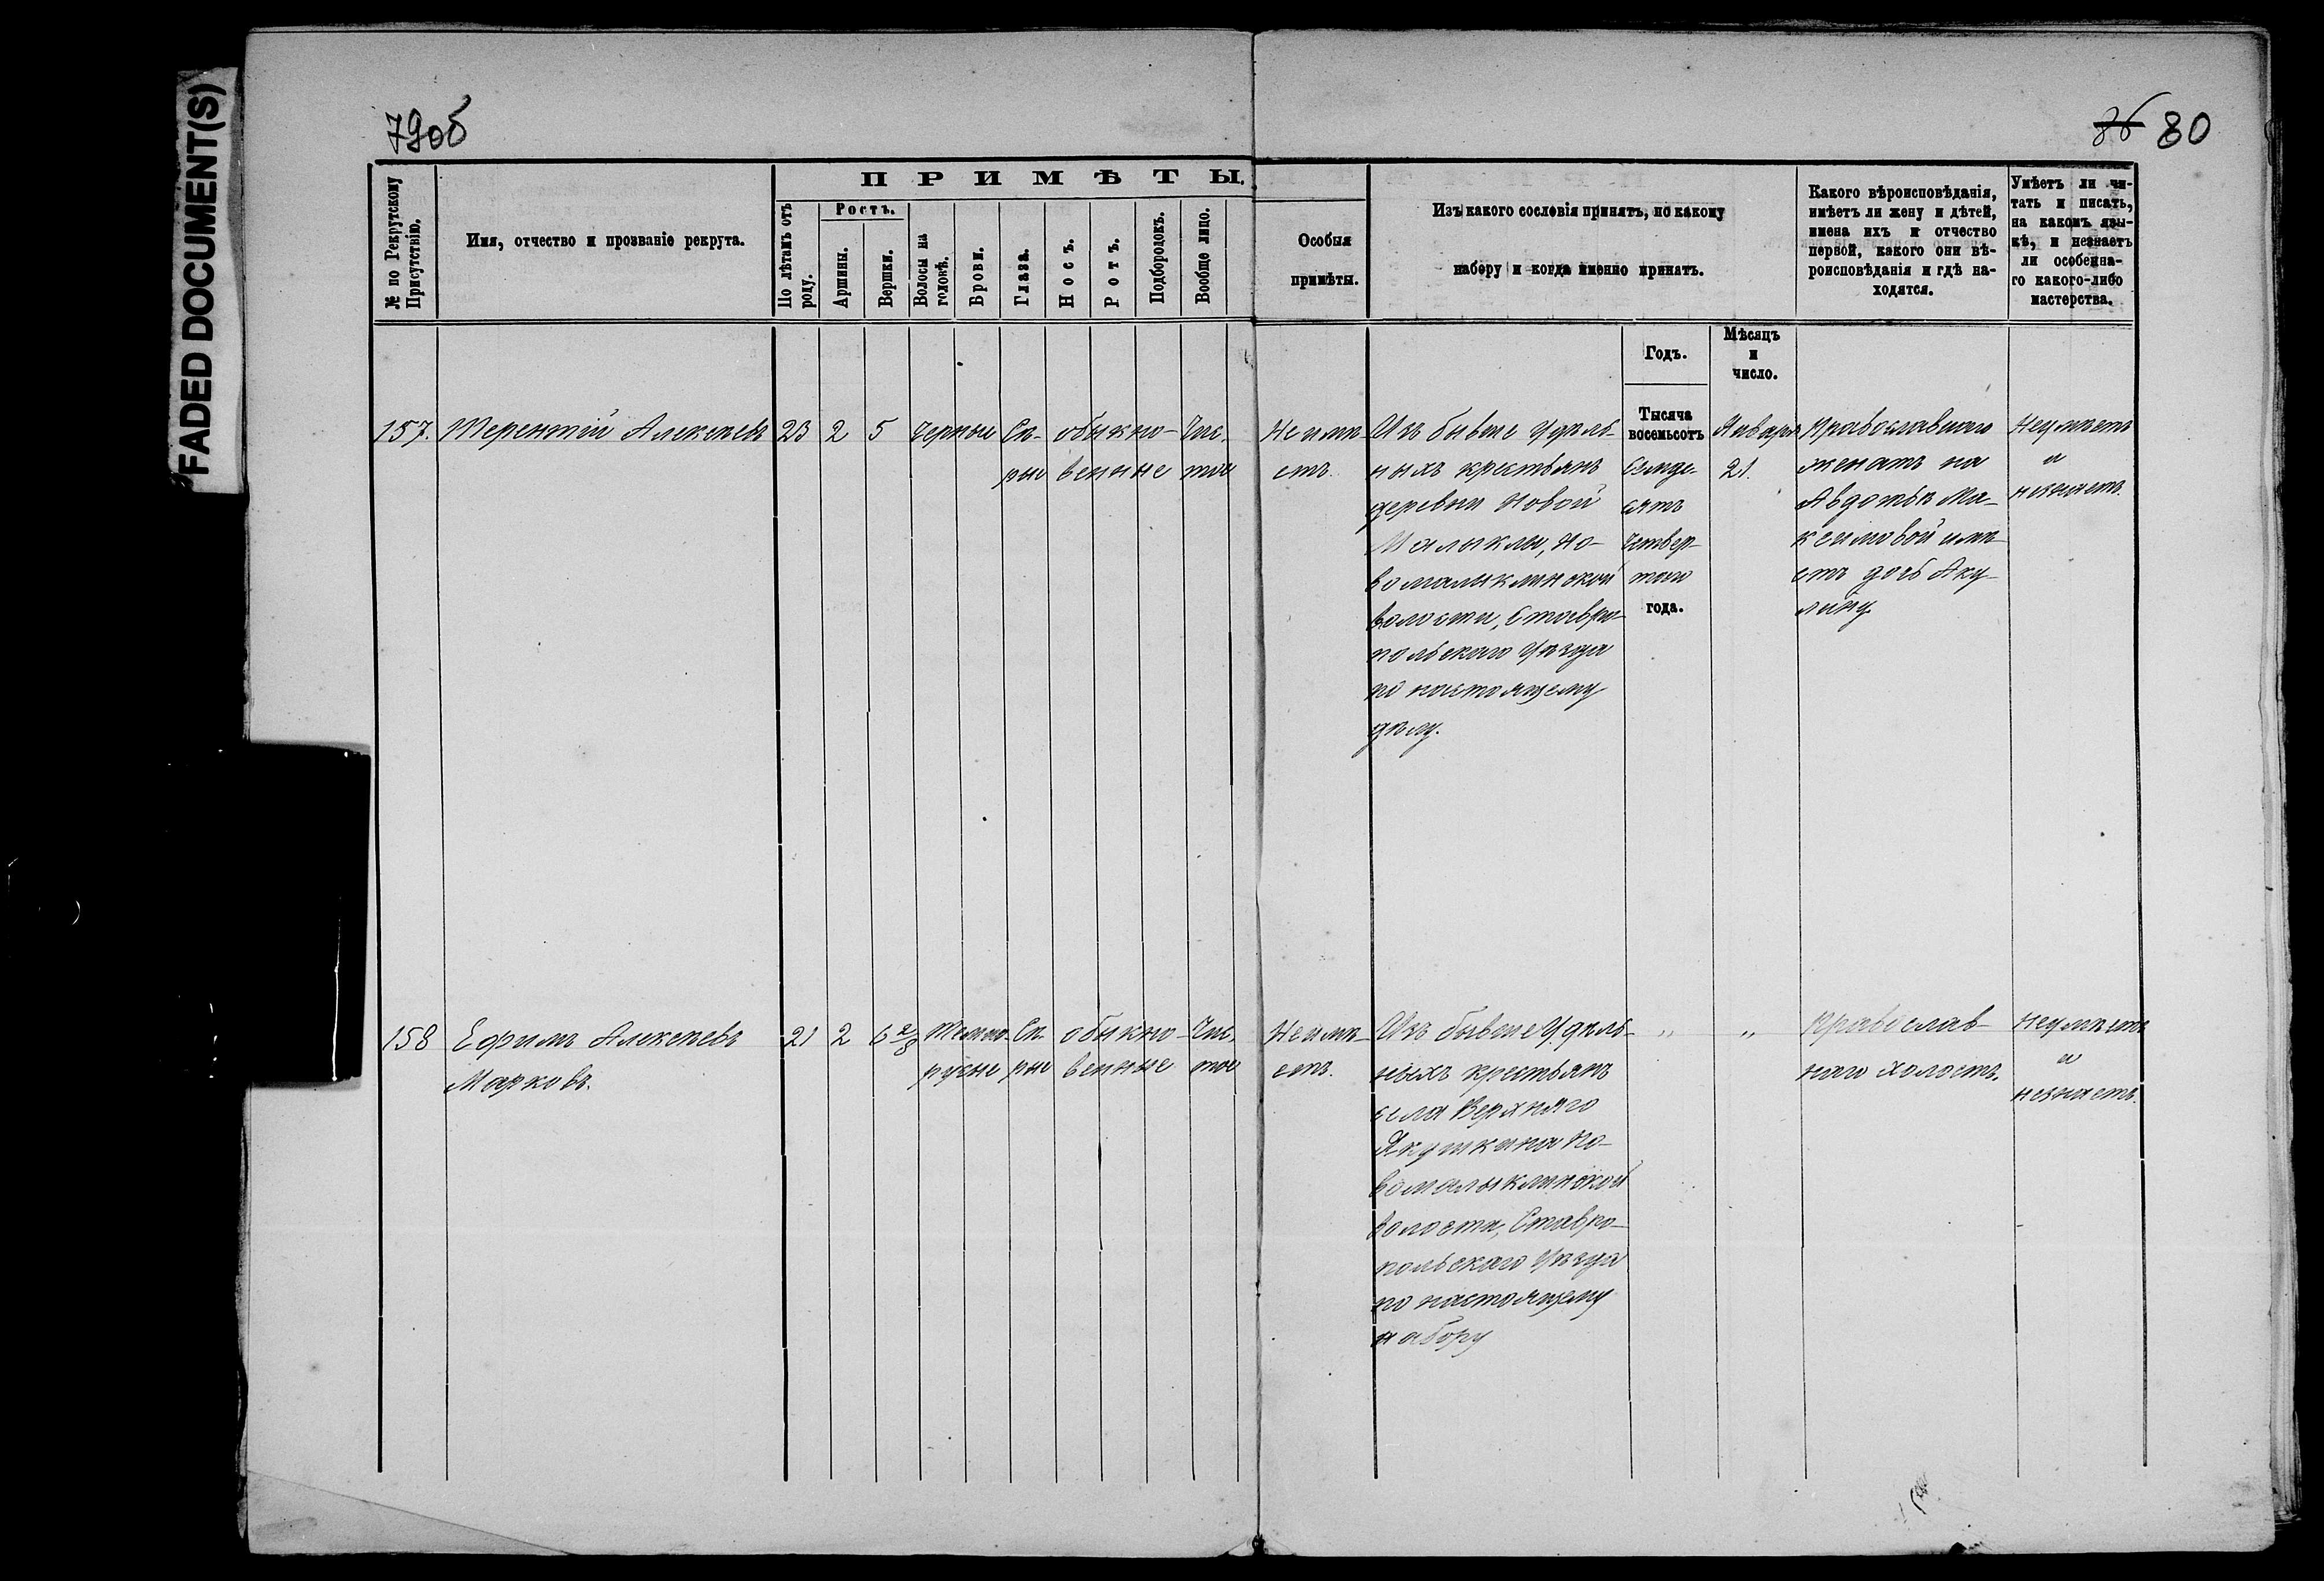 FADED DOCUMENT(S)
79об
86 80
№ по Рекрутскому Присутствію.
Имя, отчество и прозваніе рекрута.
ПРИМѢТЫ.
По лѣтамъ отъ роду.
Ростъ.
Аршины.
Вершки.
Волосы на головѣ.
Брови.
Глаза.
Носъ.
Ротъ.
Подбородокъ.
Вообще лицо.
Особыя
примѣты.
Изъ какого сословія принятъ, по какому
набору и когда именно принятъ.
Какого вѣроисповѣданія,
имѣетъ ли жену и дѣтей,
имена ихъ и отчество
первой, какого они вѣ-
роисповѣданія и гдѣ на-
ходятся.
Умѣетъ ли чи-
тать и писать,
на какомъ язы-
кѣ, и незнаетъ
ли особенна-
го какого-либо
мастерства.
Годъ.
Мѣсяцъ
и
число.
157. Терентій Алексѣевъ 23 2 5 черные Сѣ-
рые
обыкно-
венные
Чис-
тое
Неимѣ-
етъ.
Изъ бывше Удѣль-
ныхъ крестьянъ
деревни Новой
Малыклы, Но-
вомалыклинской
волости, Ставро-
польскаго Уѣзда
по настоящему
дѣлу.
Тысяча
восемьсотъ
Семде-
сятъ
четвер-
таго
года.
Января
21.
Православнаго
женатъ на
Авдотьѣ Ма-
ксимовой имѣ-
етъ дочь Аку-
лину.
Неумѣетъ
и
незнаетъ.
158 Ефимъ Алексѣевъ
Марковъ.
21 2 6 2/8 Темно-
русые
Сѣ-
рые
обыкно-
венные
Чис-
тое
Неимѣ-
етъ.
Изъ бывше Удѣль-
ныхъ крестьянъ
села Верхняго
Якушкина Но-
вомалыклинской
волости, Ставро-
польскаго Уѣзда
по настоящему
набору
„ „
Православ-
наго холостъ.
Неумѣетъ
и
незнаетъ.